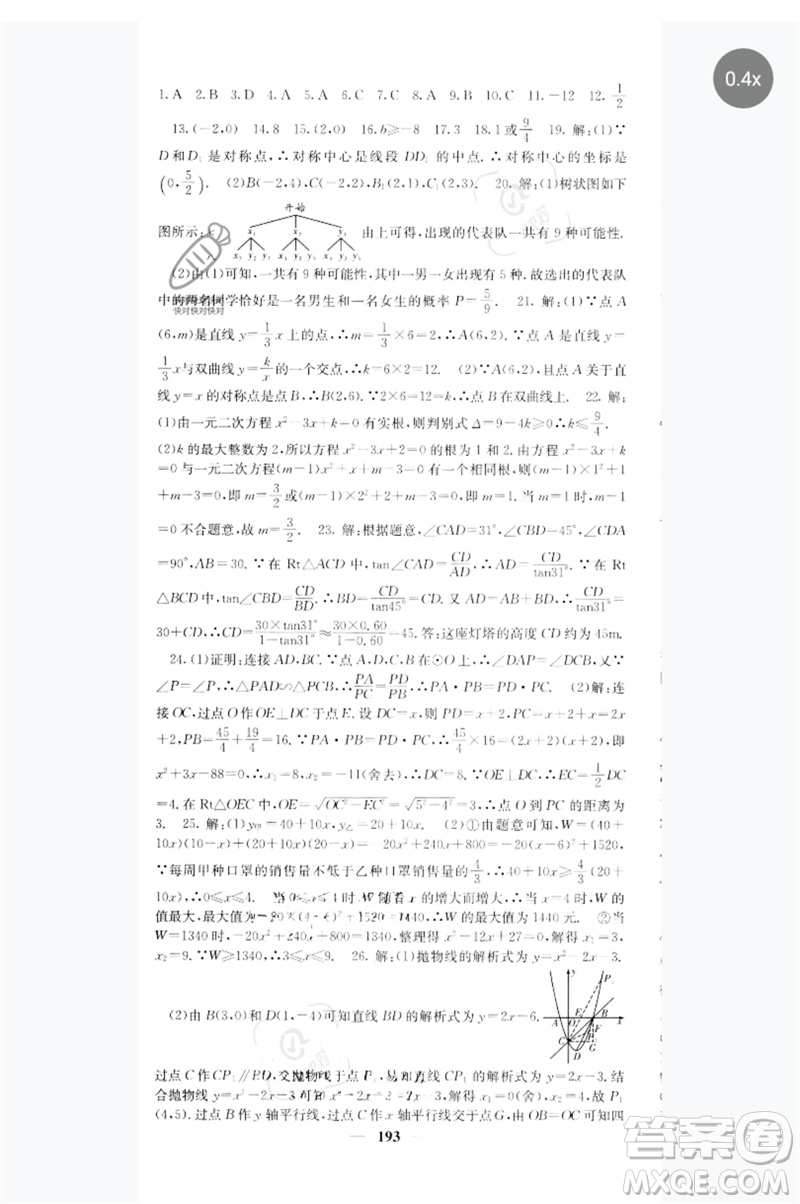 0.4x
1.A 2.B 3.D 4.A 5.B 6.A 7.C 8.B 9.C 10.C 11.-12 12.1/2
13.(-2,0) 14.8 15.(2,0) 16.b≥-8 17.3 18.1或9/4 19.解:(1)∵
D和D₁是对称点,∴对称中心是线段DD₁的中点.∴对称中心的坐标是
(0,5/2). (2)B(-2,4),C(-2,2),B₁(2,1),C₁(2,3). 20.解:(1)树状图如下
开始
图所示: x₁ y₁ 由上可得,出现的代表队一共有9种可能性.
x₁ y₂ y₁ x₁ y₂ y₁ x₁ y₂ y₁
(2)由(1)可知,一共有9种可能性,其中一男一女出现有5种.故选出的代表队
中的两名同学恰好是一名男生和一名女生的概率P=5/9. 21.解:(1)∵点A
快对快对快对
(6,m)是直线y=1/3x上的点,∴m=1/3×6=2,∴A(6,2).∵点A是直线y=
1/3x与双曲线y=k/x的一个交点,∴k=6×2=12. (2)∵A(6,2),且点A关于直
线y=x的对称点是点B,∴B(2,6).∵2×6=12,∴点B在双曲线上. 22.解:
(1)由一元二次方程x²-3x+k=0有实根,则判别式Δ=9-4k≥0∴k≤9/4.
(2)k的最大整数为2,所以方程x²-3x+2=0的根为1和2.由方程x²-3x+k
=0与一元二次方程(m-1)x²+x+m-3=0有一个相同根,则(m-1)×1²+1
+m-3=0,即m=3/2或(m-1)×2²+2+m-3=0,即m=1.当m=1时,m-1
=0不合题意,故m=3/2. 23.解:根据题意,∠CAD=31°,∠CBD=45°,∠CDA
=90°,AB=30.∵在Rt△ACD中,tan∠CAD=CD/AD,∴AD=CD/tan31°.∵在Rt
△BCD中,tan∠CBD=CD/BD.∴BD=CD/tan45°=CD.又AD=AB+BD,∴CD/tan31°=
30+CD,∴CD=30×tan31°/1-tan31°≈30×0.60/1-0.60=45.答:这座灯塔的高度CD约为45m.
24.(1)证明:连接AD,BC.∵点A、B、C、D在⊙O上,∴∠DAP=∠PCB.又∵
∠P=∠P,∴△PAD∽△PCB.∴PA/PC=PD/PB,∴PA·PB=PD·PC. (2)解:连
接OC,过点O作OE⊥DC于点E.设DC=x,则PD=x+2,PC=x+2+x=2x
+2,PB=45/4+19/4=16.∵PA·PB=PD·PC,∴45/4×16=(2+x)(2x+2),即
x²+3x-88=0,解得x₁=8,x₂=-11(舍去),∴DC=8.∵OE⊥DC,∴EC=1/2DC
=4.在Rt△OEC中,OE=√OC²-EC²=√5²-4²=3,∴点O到PC的距离为
3. 25.解:(1)y甲=40+10x,y乙=20+10x. (2)①由题意可知,W=(40+
10x)(20-x)+(20+10x)(20-x)=-10x²+240x+800=-20(x-6)²+1520,
∵每周甲种口罩的销售量不低于乙种口罩的销售量的4/3,∴40+10x≥4/3(20+
10x),∴0≤x≤4.∴当0≤x≤4时,W随着x的增大而增大,∴当x=4时,W的
值最大,最大值为-20(4-6)²+1520=1440,∴W的最大值为1440元. ②当
W=1340时,-20x²+240x+800=1340,整理得x²-12x+27=0,解得x₁=3,
x₂=9.∵W≥1340,∴3≤x≤9. 26.解:(1)抛物线的解析式为y=x²-2x-3.
(2)由B(3,0)和D(1,-4)可知直线BD的解析式为y=2x-6.
过点C作CP₁∥BD,交抛物线于点P₁,易知CP₁的解析式为y=2x-3.结
合抛物线y=x²-2x-3可知x²-2x-3=2x-3.解得x₁=0(舍去),x₂=4,故P₁
(4,5).过点B作y轴平行线,过点C作x轴平行线交于点G,由OB=OC可知四
193
答案圈
MXQE.COM